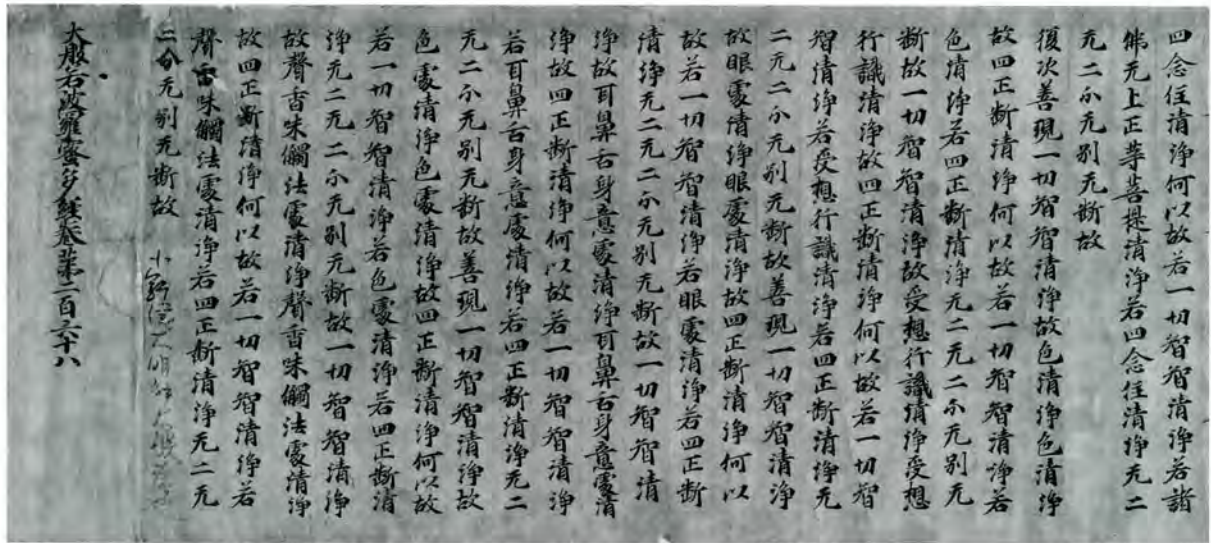 四念住清淨何以故若一切智智清淨若諸
佛无上正等菩提清淨若四念住清淨无二
无二亦无別无断故
復次善現一切智智清淨故色清淨色清淨
故四正断清淨何以故若一切智智清淨若
色清淨若四正断清淨无二无二亦无別无
断故一切智智清淨故受想行識清淨受想
行識清淨故四正断清淨何以故若一切智
智清淨若受想行識清淨若四正断清淨无
二无二亦无別无断故善現一切智智清淨
故眼處清淨眼處清淨故四正断清淨何以
故若一切智智清淨若眼處清淨若四正断
清淨无二无二亦无別无断故一切智智清
淨故耳鼻舌身意處清淨耳鼻舌身意處清
淨故四正断清淨何以故若一切智智清淨
若耳鼻舌身意處清淨若四正断清淨无二
无二亦无別无断故善現一切智智清淨故
色處清淨色處清淨故四正断清淨何以故
若一切智智清淨若色處清淨若四正断清
淨无二无二亦无別无断故一切智智清淨
故聲香味觸法處清淨聲香味觸法處清淨
故四正断清淨何以故若一切智智清淨若
聲香味觸法處清淨若四正断清淨无二无
二亦无別无断故
大般若波羅蜜多經卷第二百六十八